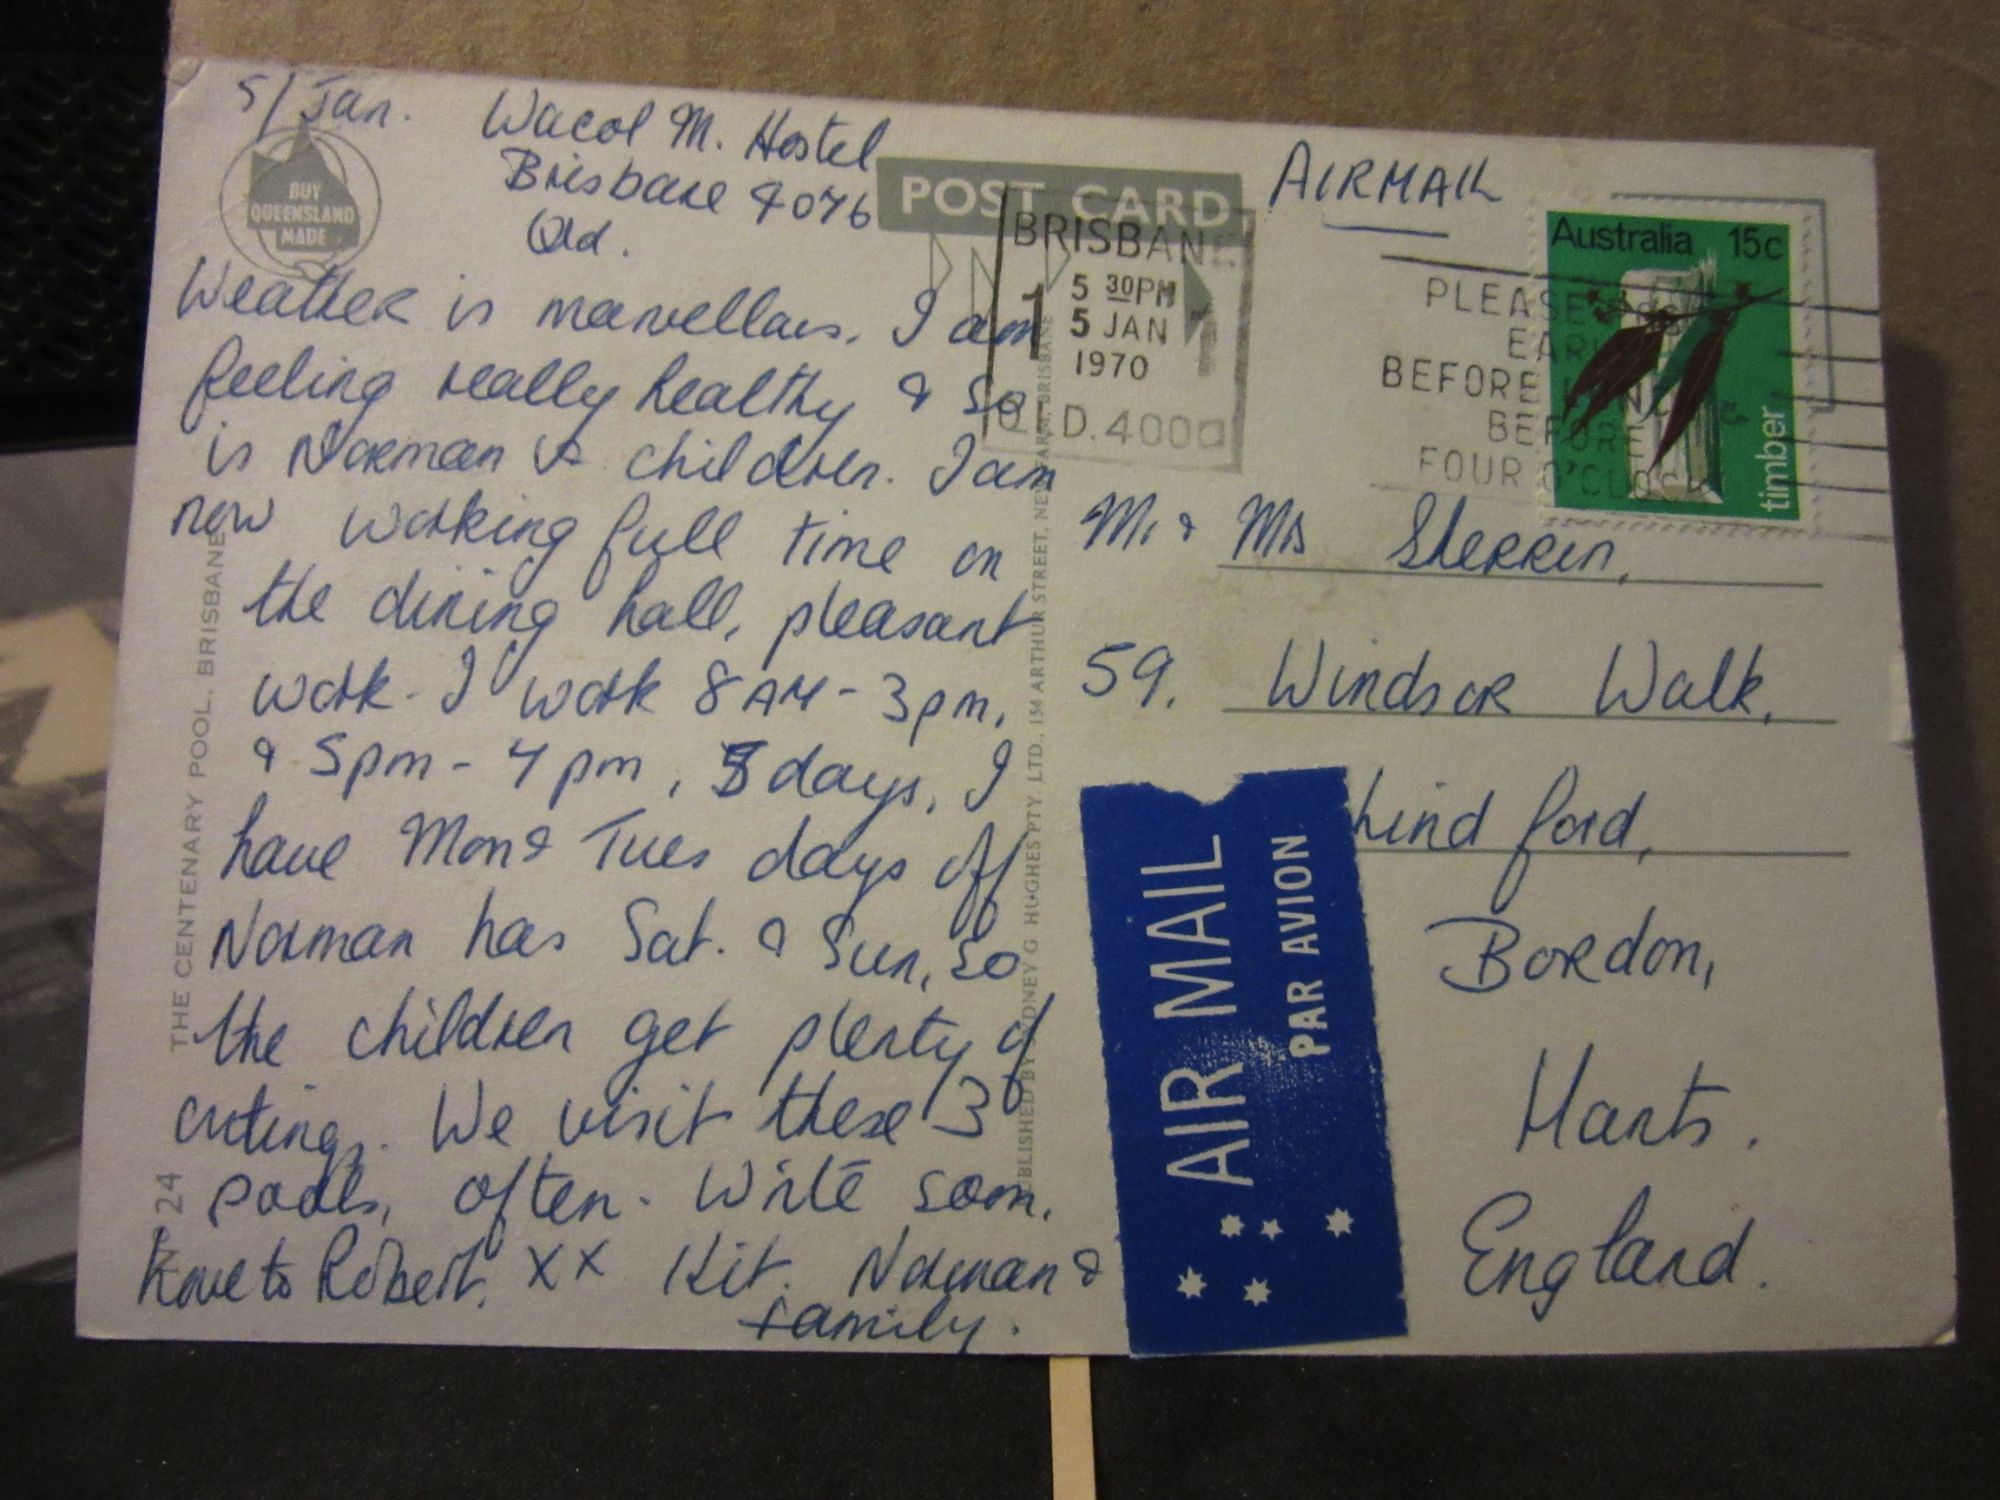 5/Jan.
Wacol M. Hostel
Brisbane 4076
Qld.
BUY
QUEENSLAND
MADE
Weather is marvellous. I am
feeling really healthy & so
is Norman & children. I am
now working full time on
the dining hall, pleasant
work. I work 8AM - 3pm,
& 5pm - 7pm, 5 days, I
have Mon & Tues days off
Norman has Sat. & Sun, so
the children get plenty of
outings. We visit these 3
pools, often. Write soon.
Love to Robert. XX Kit. Norman &
family.
THE CENTENARY POOL, BRISBANE
24
POST CARD
PUBLISHED BY SYDNEY G HUGHES PTY. LTD., 154 ARTHUR STREET, NEW FARM, BRISBANE
BRISBANE
1
5 30PM
5 JAN
1970
QLD. 4000
AIRMAIL
PLEASE POST
EARLY
BEFORE
BEFORE
FOUR O'CLOCK
Australia 15c
timber
Mr & Mrs Sherren,
59. Windsor Walk,
Lindford,
Bordon,
Hants.
England.
AIR MAIL
PAR AVION